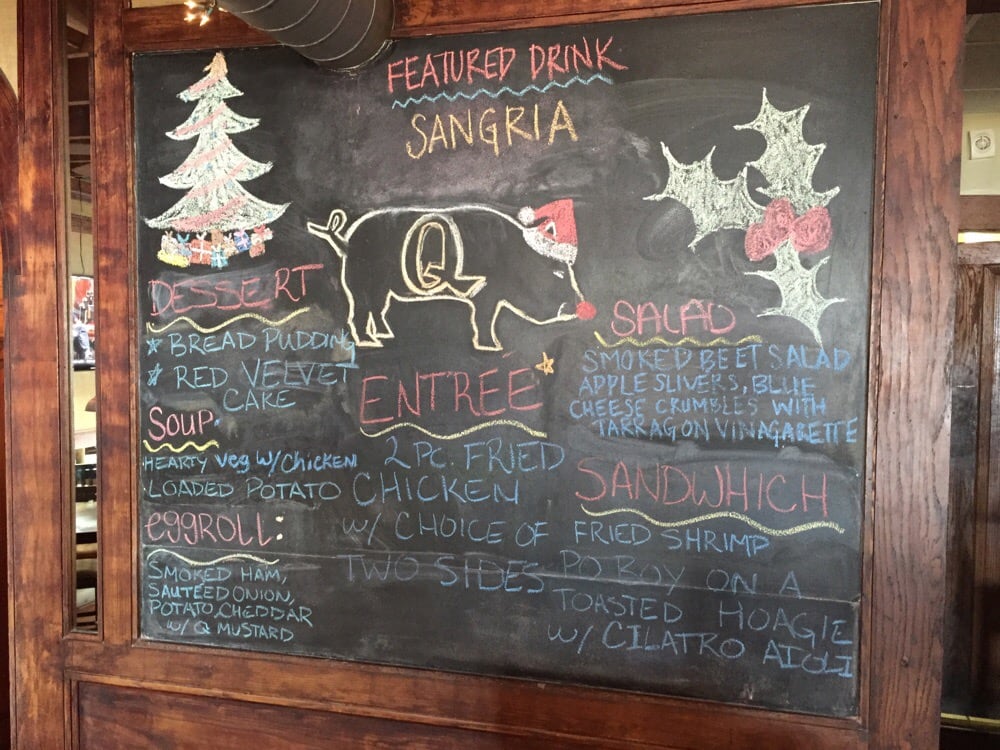 FEATURED DRINK
SANGRIA
Q
DESSERT
* BREAD PUDDING
* RED VELVET
CAKE
SOUP.
HEARTY Veg W/Chicken
LOADED POTATO
eggROLL:
SMOKED HAM,
SAUTEED ONION,
POTATO, CHEDDAR
W/ Q MUSTARD
ENTRÉE
2 PC. FRIED
CHICKEN
W/ CHOICE OF
TWO SIDES
SALAD
SMOKED BEET SALAD
APPLE SLIVERS, BLUE
CHEESE CRUMBLES WITH
TARRAGON VINAGARETTE
SANDWHICH
FRIED SHRIMP
PO BOY ON A
TOASTED HOAGIE
W/ CILATRO AIOLI